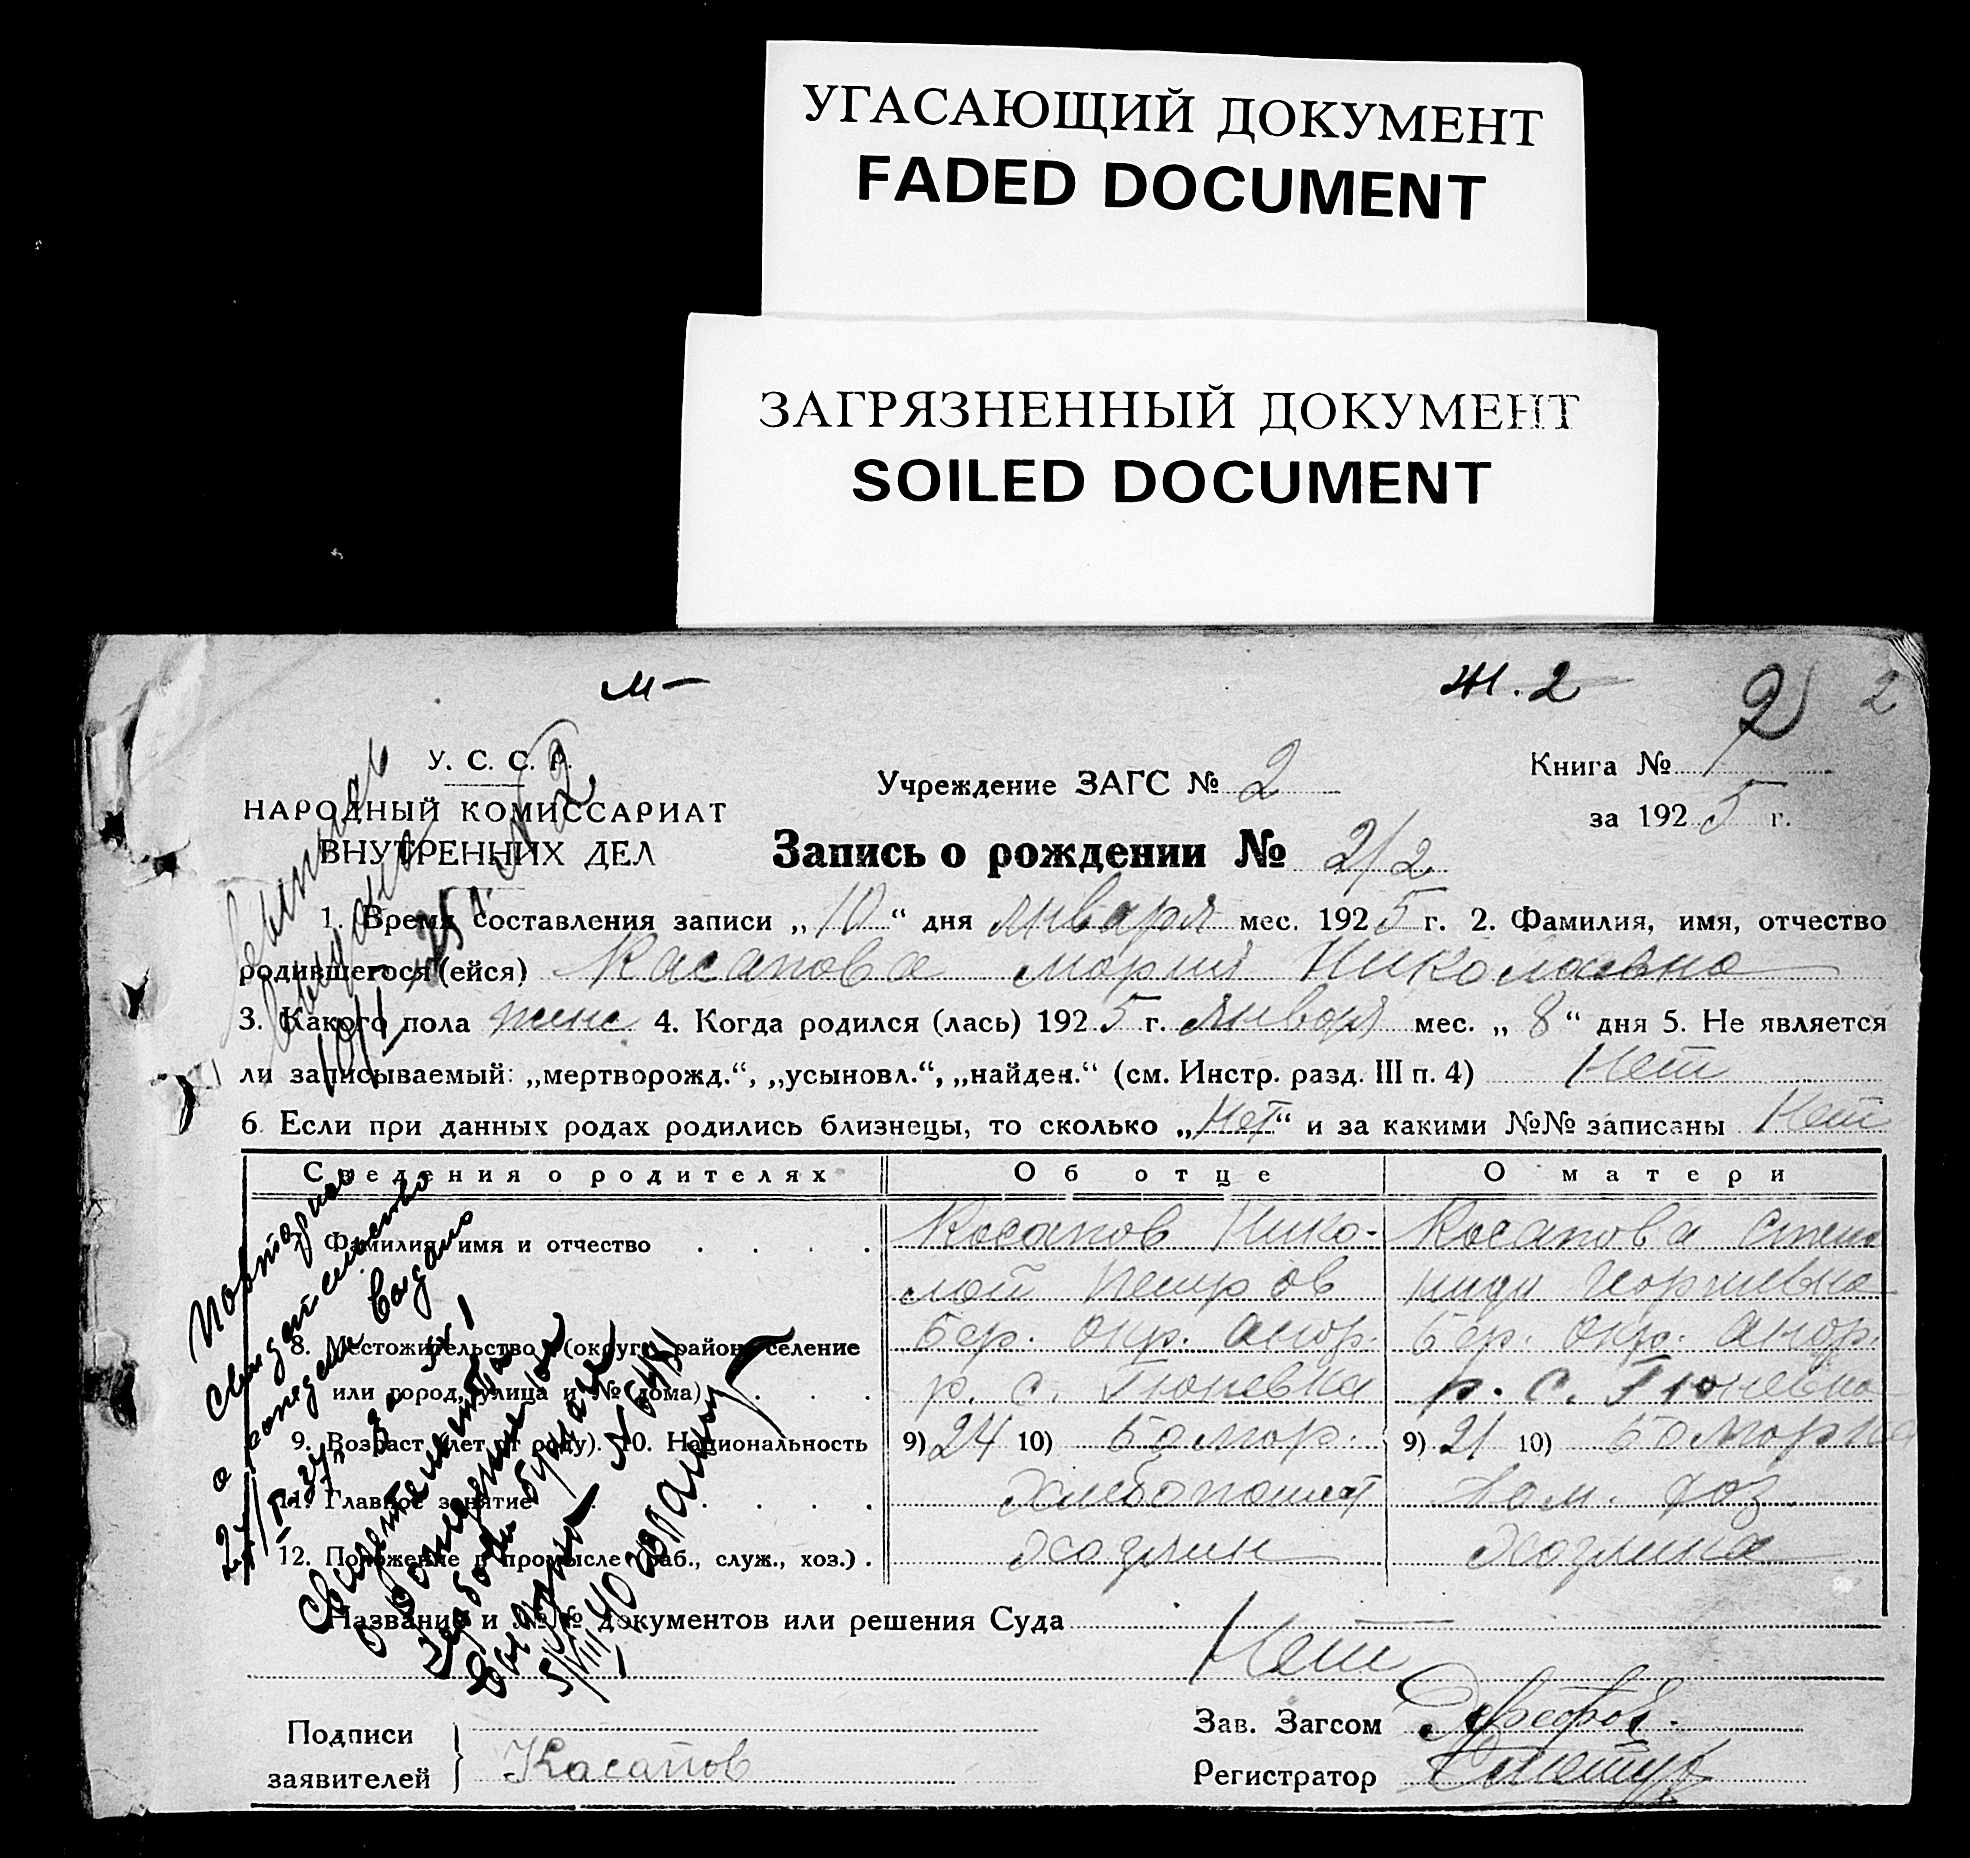 УГАСАЮЩИЙ ДОКУМЕНТ
FADED DOCUMENT
ЗАГРЯЗНЕННЫЙ ДОКУМЕНТ
SOILED DOCUMENT
М — Ж. 2 2 2
У. С. С. Р.
НАРОДНЫЙ КОМИССАРИАТ
ВНУТРЕННИХ ДЕЛ
Учреждение ЗАГС № 2
Книга № 1
за 1925 г.
Запись о рождении № 2/2
1. Время составления записи „10“ дня января мес. 1925 г. 2. Фамилия, имя, отчество
родившегося (ейся) Касапова Мария Николаевна
3. Какого пола женс 4. Когда родился (лась) 1925 г. января мес. „8“ дня 5. Не является
ли записываемый: „мертворожд.“, „усыновл.“, „найден.“ (см. Инстр. разд. III п. 4) Нет
6. Если при данных родах родились близнецы, то сколько „Нет“ и за какими №№ записаны Нет
Сведения о родителях Об отце О матери
7. Фамилия, имя и отчество Касапов Нико- Касапова
лай Петров
8. Местожительство (округ, район, селение Бер. окр. Андр. Бер. окр. Андр.
или город, улица и № дома) р. с. Гюневка р. с. Гюневка
9. Возраст (лет от роду). 10. Национальность 9) 24 10) болгар. 9) 21 10) болгарка
11. Главное занятие хлебопашет дом. хоз.
12. Положение в промысле (раб., служ., хоз.) хозяин хозяина
Название и №№ документов или решения Суда Нет
Повторное
свидетельство
о рождении выдано
Свидетельство
о рождении
выдано
Подписи
заявителей Касапов
Зав. Загсом
Регистратор